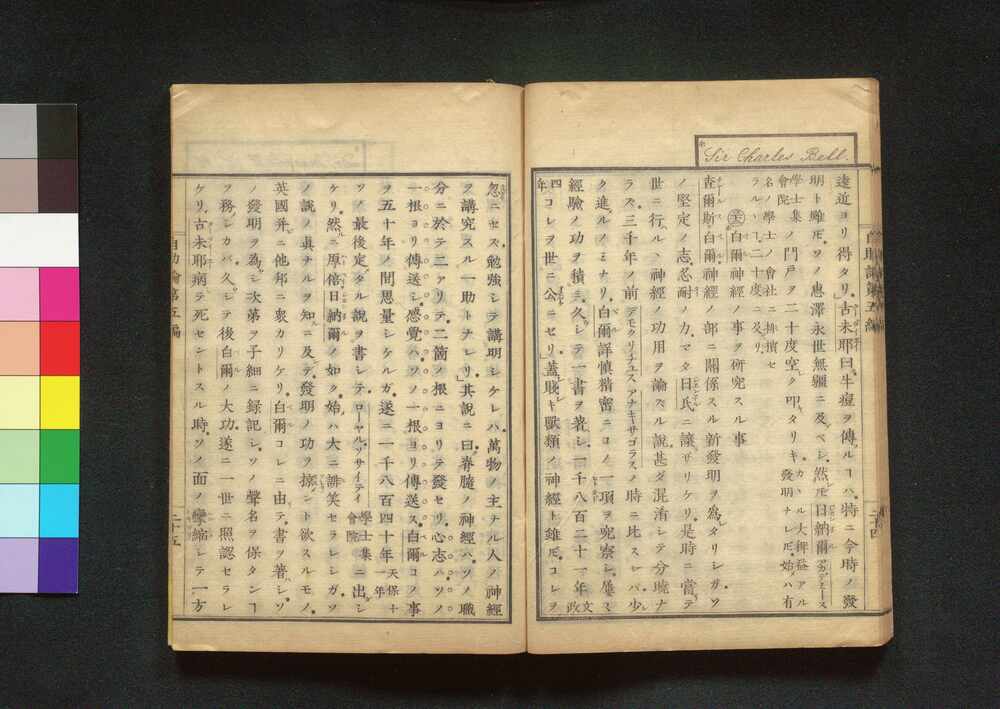 Sir Charles Bell.
遠近ヨリ得タリ。古未耶曰。牛痘ヲ傳ルヿハ。特ニ今時ノ發
明ト雖𪜈。ソノ惠澤永世無疆ニ及ベシ。然𪜈日納爾
學士集會院ノ門戸ヲ二十度空ク叩タリキ
カヽル大裨益アル發明ナレ𪜈。始ハ有
名ノ學士ノ會社ニ排擯セ
ラルヽヿ。二十度ニ及リ。
白爾神經ノ事ヲ研究スル事
査爾斯白爾神經ノ部ニ關係スル新發明ヲ爲タリシガ。ソ
ノ堅定ノ志。忍耐ノ力。マタ日氏ニ讓ザリケリ。是時ニ當テ
世ニ行ルヽ神經ノ功用ヲ論ズル說甚ダ混淆シテ分曉ナ
ラズ。三千年ノ前デモクリチユスアナキサゴラスノ時ニ比スレバ少
ク進ルノミナリ。白爾詳愼精密ニコノ一項ヲ究察シ。屢ミ
經驗ノ功ヲ積ミ。久シテ一書ヲ著シ。一千八百二十一年文政
四年コレヲ世ニ公ニセリ。蓋賤キ獸類ノ神經ト雖𪜈。コレヲ
自助論第五編
二十四
忽ニセズ。勉強シテ講明シケレバ。萬物ノ主ナル人ノ神經
ヲ講究スル一助トナレリ。其說ニ曰。脊髓ノ神經ハ。ソノ職
分ニ於テ二アリテ。二箇ノ根ニヨリテ發セリ。心志ハ。ソノ
一根ヨリ傳送シ。感覺ハ。ソノ一根ヨリ傳送ス。白爾コノ事
ヲ五十年ノ間思量シケルガ。遂ニ一千八百四十年天保十年
ソノ最後定タル說ヲ書シテ。ローヤルソサイテイ學士集會院ニ出シ
ケリ。然ニ原倍日納爾ノ如ク。始ハ大ニ誹笑セラレシガ。ソ
ノ說ノ眞ナルヲ知ニ及デ。發明ノ功ヲ掠ント欲スルモノ。
英國并ニ他邦ニ衆カリケリ。白爾コレニ由テ。書ヲ著シ。ソ
ノ發明ヲ爲シ次第ヲ子細ニ錄記シ。ソノ聲名ヲ保タンヿ
ヲ務シカバ。久シテ後白爾ノ大功。遂ニ一世ニ照認セラレ
ケリ。古未耶病テ死セントスル時。ソノ面ノ攣縮シテ一方
自助論第五編
二十五